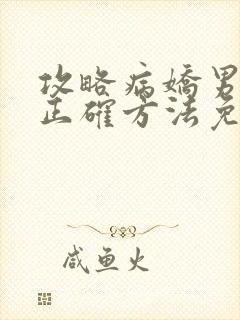 攻略病嬌男
正確方法免
咸鱼火